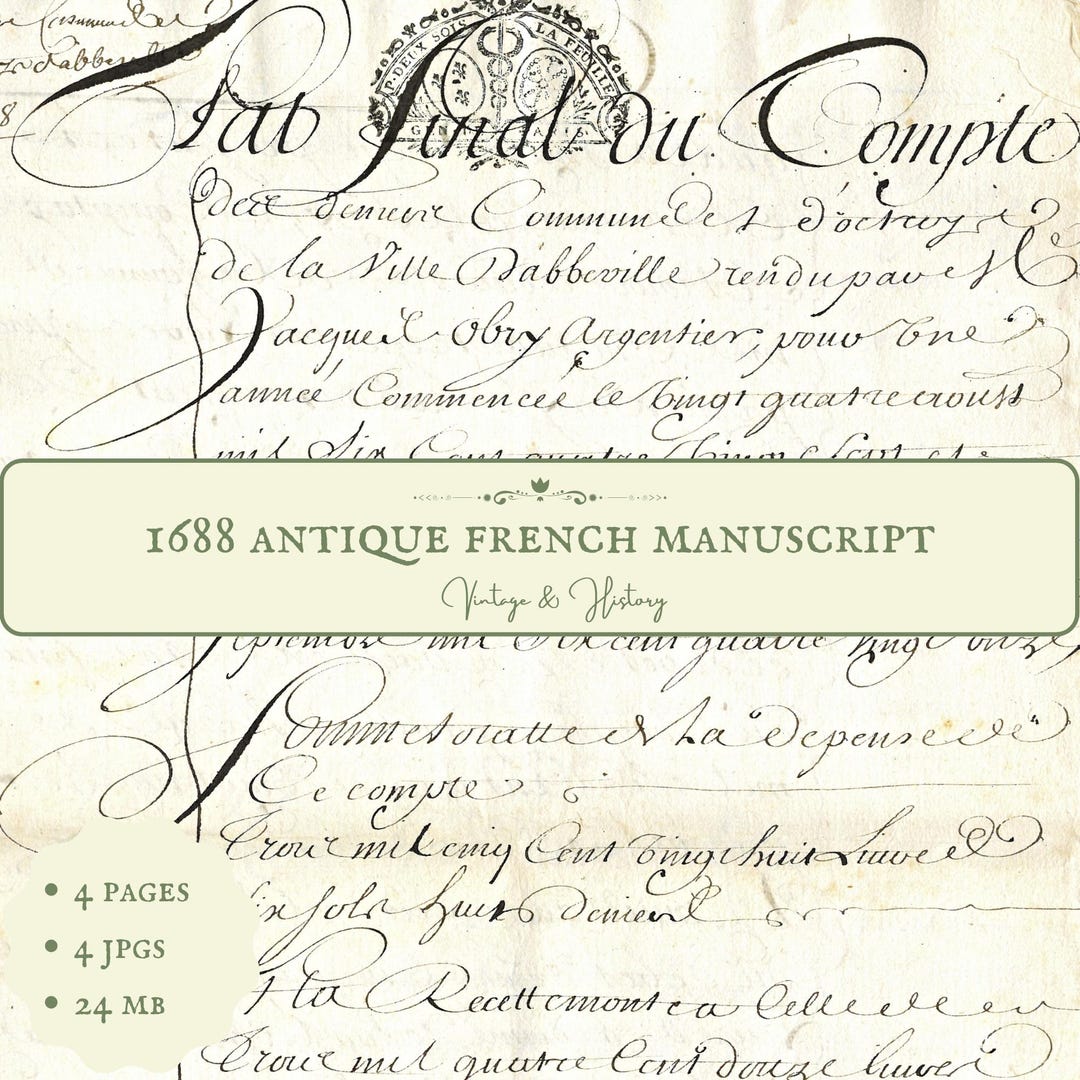 dabbeville
8
P. DEUX SOLS LA FEUILLE
GEN
Etat final du Compte
des deniers Communs et d'octroys
de la Ville Dabbeville rendu par
Jacques Obry Argentier, pour une
année Commencée le Vingt quatre aoust
mil Six Cent quatre Vingt Sept et
1688 ANTIQUE FRENCH MANUSCRIPT
Vintage & History
Septembre mil Six cent quatre Vingt onze
Somme totalle de La depense de
Ce compte
Trois mil cinq Cent Vingt huit Livres
six sols huit deniers
Et la Recette monte a Celle de
Trois mil quatre Cent douze livres
• 4 PAGES
• 4 JPGS
• 24 MB